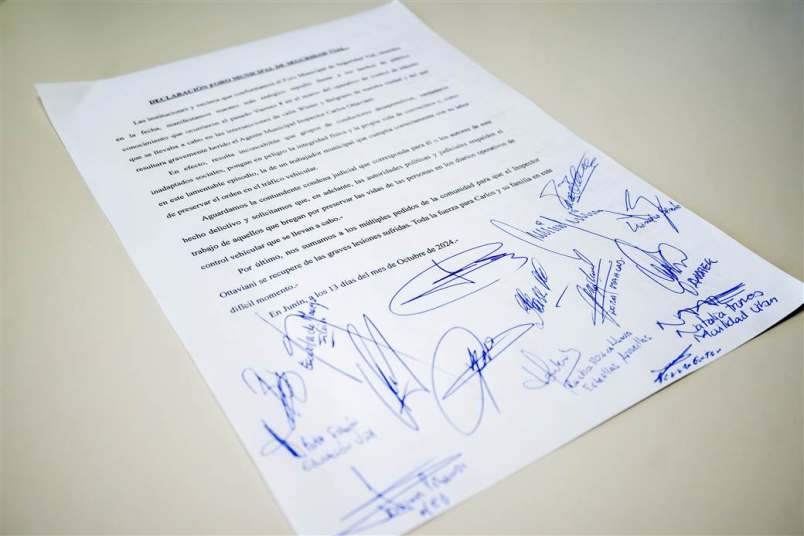 DECLARACIÓN FORO MUNICIPAL DE SEGURIDAD VIAL.-
Las instituciones y vecinos que conformamos el Foro Municipal de Seguridad Vial, reunidos
en la fecha, manifestamos nuestro más enérgico repudio frente a los hechos de público
conocimiento que ocurrieron el pasado Viernes 4 en el marco del operativo de control de tránsito
que se llevaba a cabo en las intersecciones de calle Winter y Belgrano de nuestra ciudad y del que
resultara gravemente herido el Agente Municipal Inspector Carlos Ottaviani.
En efecto, resulta inconcebible que grupos de conductores desaprensivos, verdaderos
inadaptados sociales, pongan en peligro la integridad física y la propia vida de terceros o, como
en este lamentable episodio, la de un trabajador municipal que cumplía correctamente con su labor
de preservar el orden en el tráfico vehicular.
Aguardamos la contundente condena judicial que corresponda para él o los autores de este
hecho delictivo y solicitamos que, en adelante, las autoridades políticas y judiciales respalden el
trabajo de aquellos que bregan por preservar las vidas de las personas en los diarios operativos de
control vehicular que se llevan a cabo.-
Por último, nos sumamos a los múltiples pedidos de la comunidad para que el Inspector
Ottaviani se recupere de las graves lesiones sufridas. Toda la fuerza para Carlos y su familia en este
difícil momento.-
En Junín, a los 13 días del mes de Octubre de 2024.-
Natalia
Movilidad Urban
Estrellas Amarillas
Educación Vial